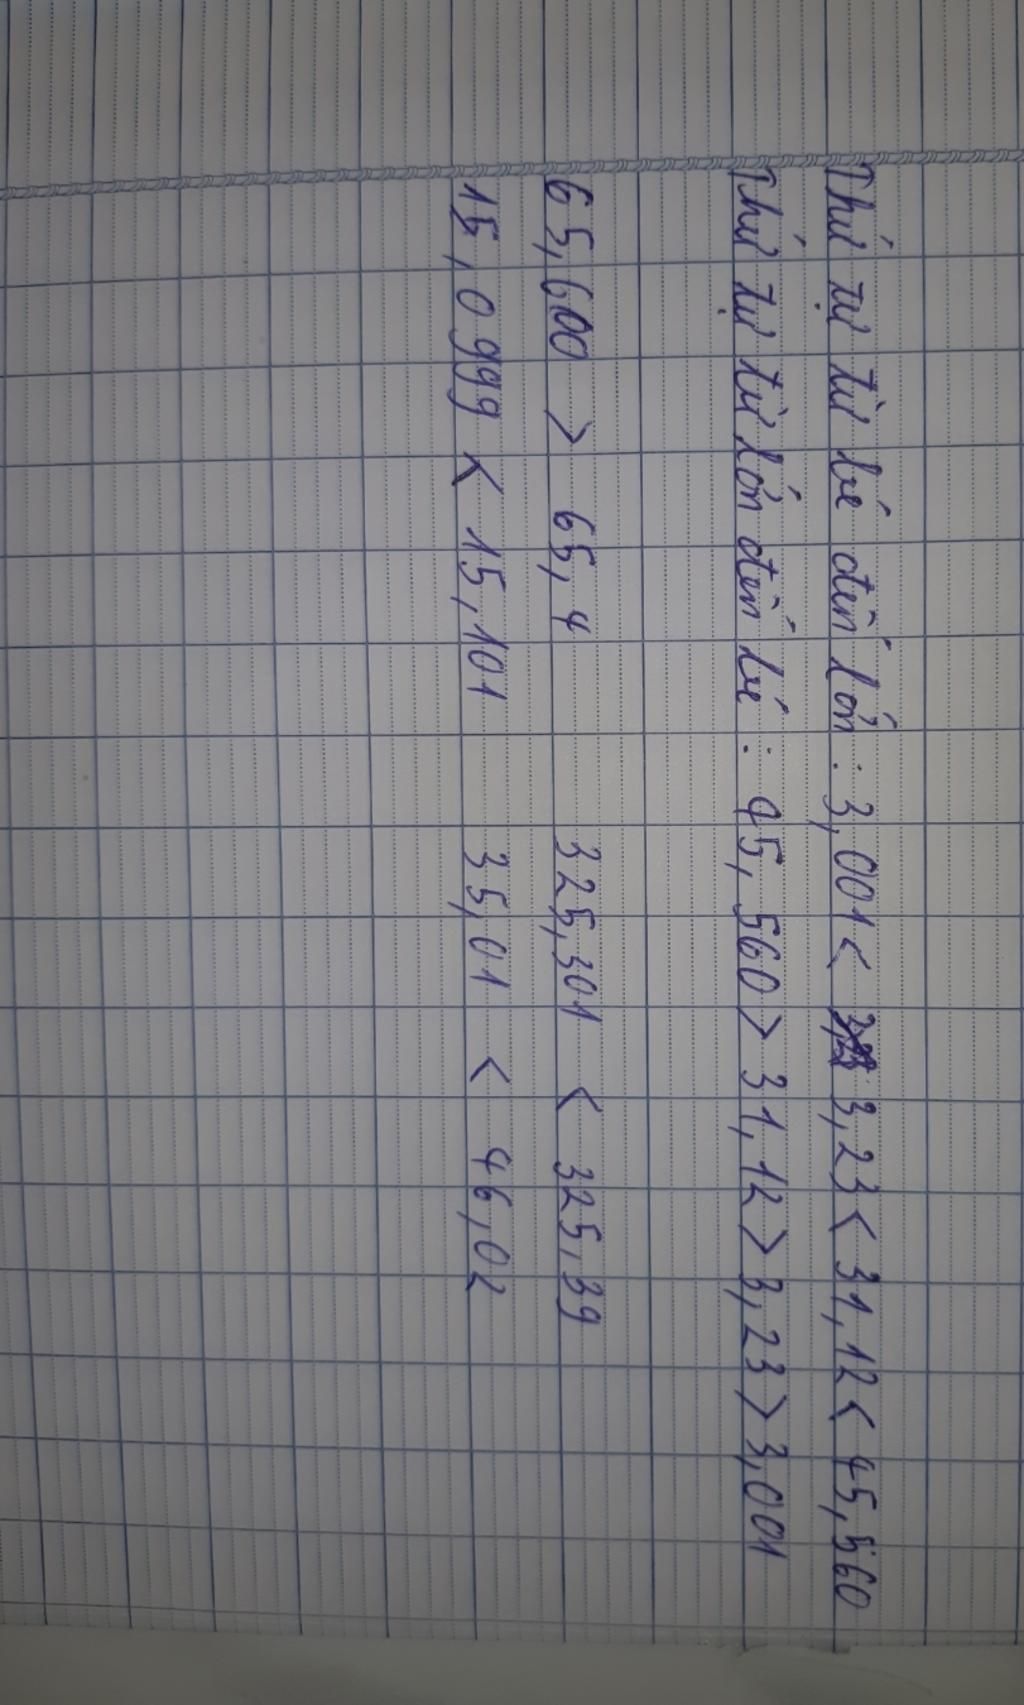 Thứ tự từ bé đến lớn : 3,001 < 3,23 < 31,12 < 45,560
Thứ tự từ lớn đến bé : 45,560 > 31,12 > 3,23 > 3,001
65,600 > 65,4 325,301 < 325,39
15,0999 < 15,101 35,01 < 46,02